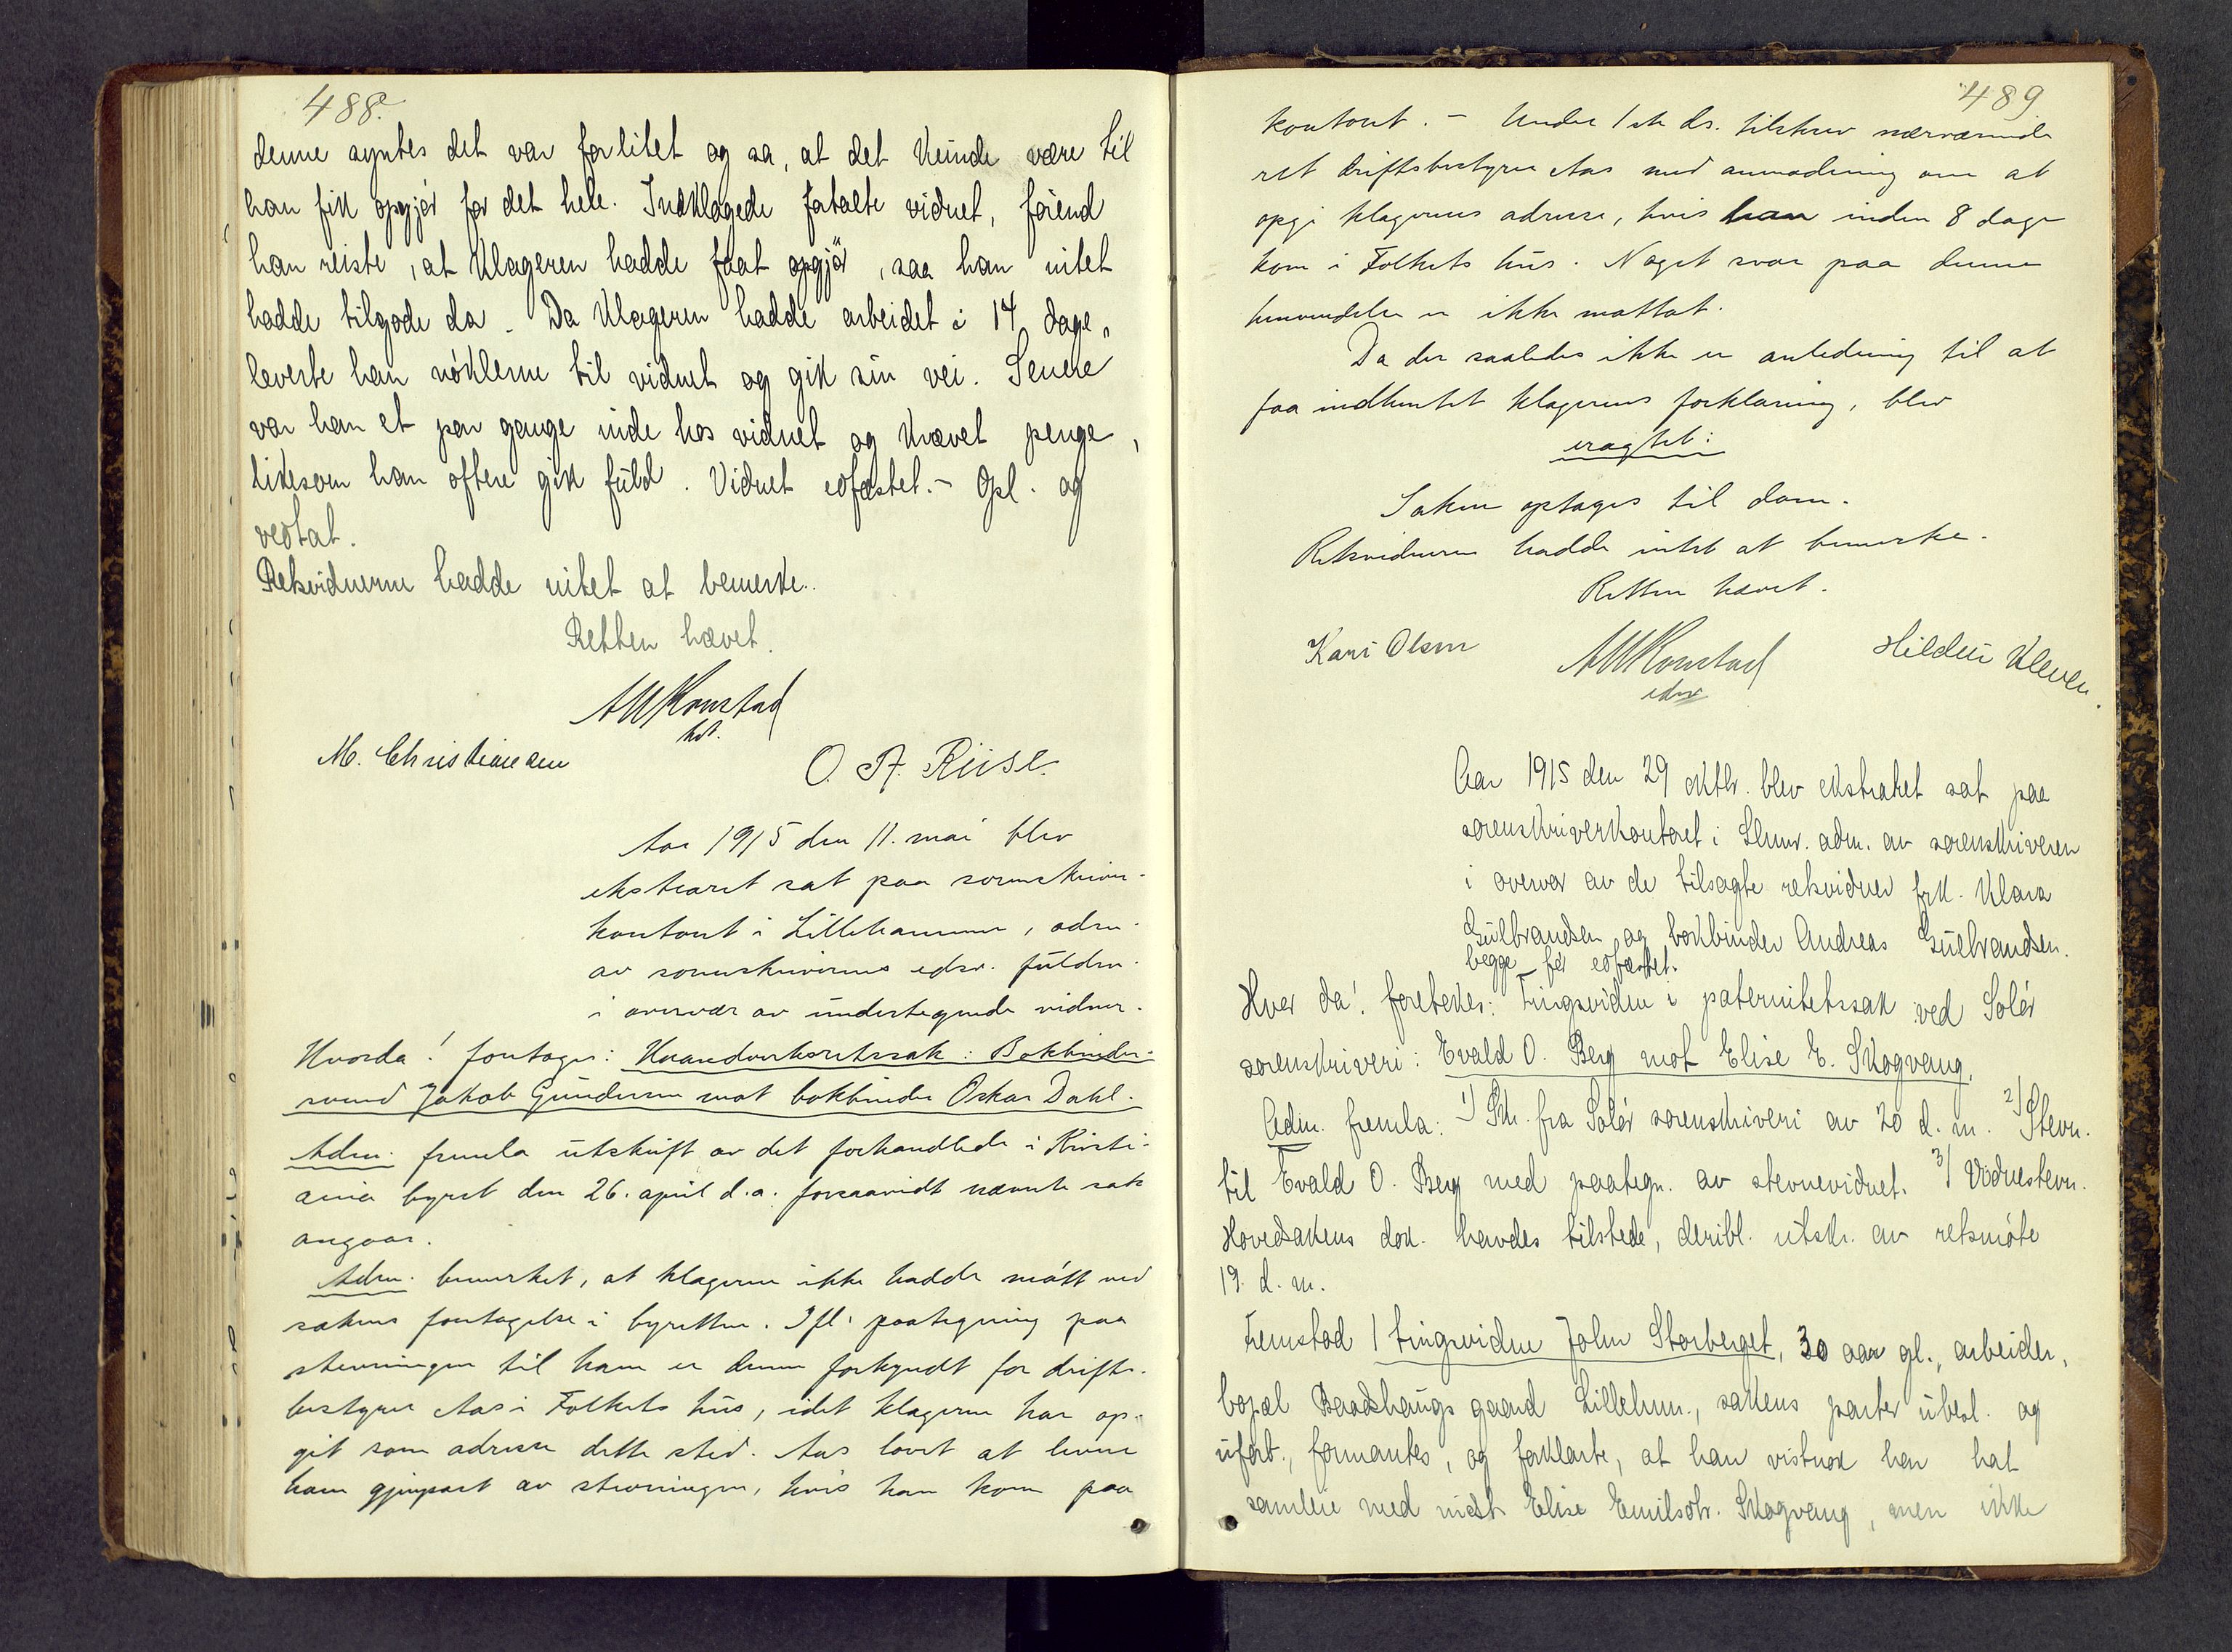 488.
denne syntes det var for litet og sa, at det kunde være til
han fik opgjør for det hele. Indklagede fortalte vidnet, førend
han reiste, at klageren hadde faat opgjør, saa han intet
hadde tilgode da. Da klageren hadde arbeidet i 14 dage,
leverte han nøklerne til vidnet og gik sin vei. Senere
var han et par gange inde hos vidnet og krævet penge,
likesom han oftere gik fuld. Vidnet edfæstet. - Opl. og
vedtat.
Retsvidnerne hadde intet at bemerke.
Retten hævet.
AWKonstad
kst.
M. Christiansen
O. A. Riise.
Aar 1915 den 11. mai blev
ekstraret sat paa sorenskriver-
kontoret i Lillehammer, adm.
av sorenskriverens edsv. fuldm.
i overvær av undertegnede vidner.
Hvorda! foretages: Haandverksretssak: Bokbinder-
svend Jakob Gundersen mot bokbinder Oskar Dahl.
Adm. fremla utskrift av det forhandlede i Kristi-
ania byret den 26. april d.a. forsaavidt nævnte sak
angaar.
Adm. bemerket, at klageren ikke hadde møtt ved
sakens foretagelse i byretten. Ifl. paategning paa
stevningen til ham er denne forkyndt for drifts-
bestyrer Aas i Folkets hus, idet klageren har op-
git som adresse dette sted. Aas lovet at levere
ham gjenpart av stevningen, hvis han kom paa
489
kontoret. - Under 1ste ds. tilskrev nærværende
ret driftsbestyrer Aas med anmodning om at
opgi klagerens adresse, hvis han inden 8 dage
kom i Folkets hus. Noget svar paa denne
henvendelse er ikke mottat.
Da der saaledes ikke er anledning til at
faa indhentet klagerens forklaring, blev
eragtet:
Saken optages til dom.
Retsvidnerne hadde intet at bemerke.
Retten hævet.
Kari Olsen
AWKonstad
edsv
Hildur Kleven.
Aar 1915 den 29 oktbr. blev ekstraret sat paa
sorenskriverkontoret i Llhmr. adm. av sorenskriveren
i overvær av de tilsagte retsvidner frk. Klara
Gulbrandsen og bokbinder Andreas Gulbrandsen.
begge før edfæstet.
Hvor da! foretokes: Tingsvidne i paternitetssak ved Solør
sorenskriveri: Evald O. Berg mot Elise E. Skogvang.
Adm. fremla: 1) Skr. fra Solør sorenskriveri av 20 d. m. 2) Stevn.
til Evald O. Berg med paategn. av stevnevidnet. 3) Vidnestevn.
Hovedsakens dok. havdes tilstede, deribl. utskr. av retsmøte
19. d. m.
Fremstod 1 tingsvidne John Storberget, 30 aar gl., arbeider,
bopæl Baadshaugs gaard Lillehmr., sakens parter ubesl. og
ubesv., formantes, og forklarte, at han vistnok har hat
samleie med indst. Elise Emilsdtr. Skogvang, men ikke